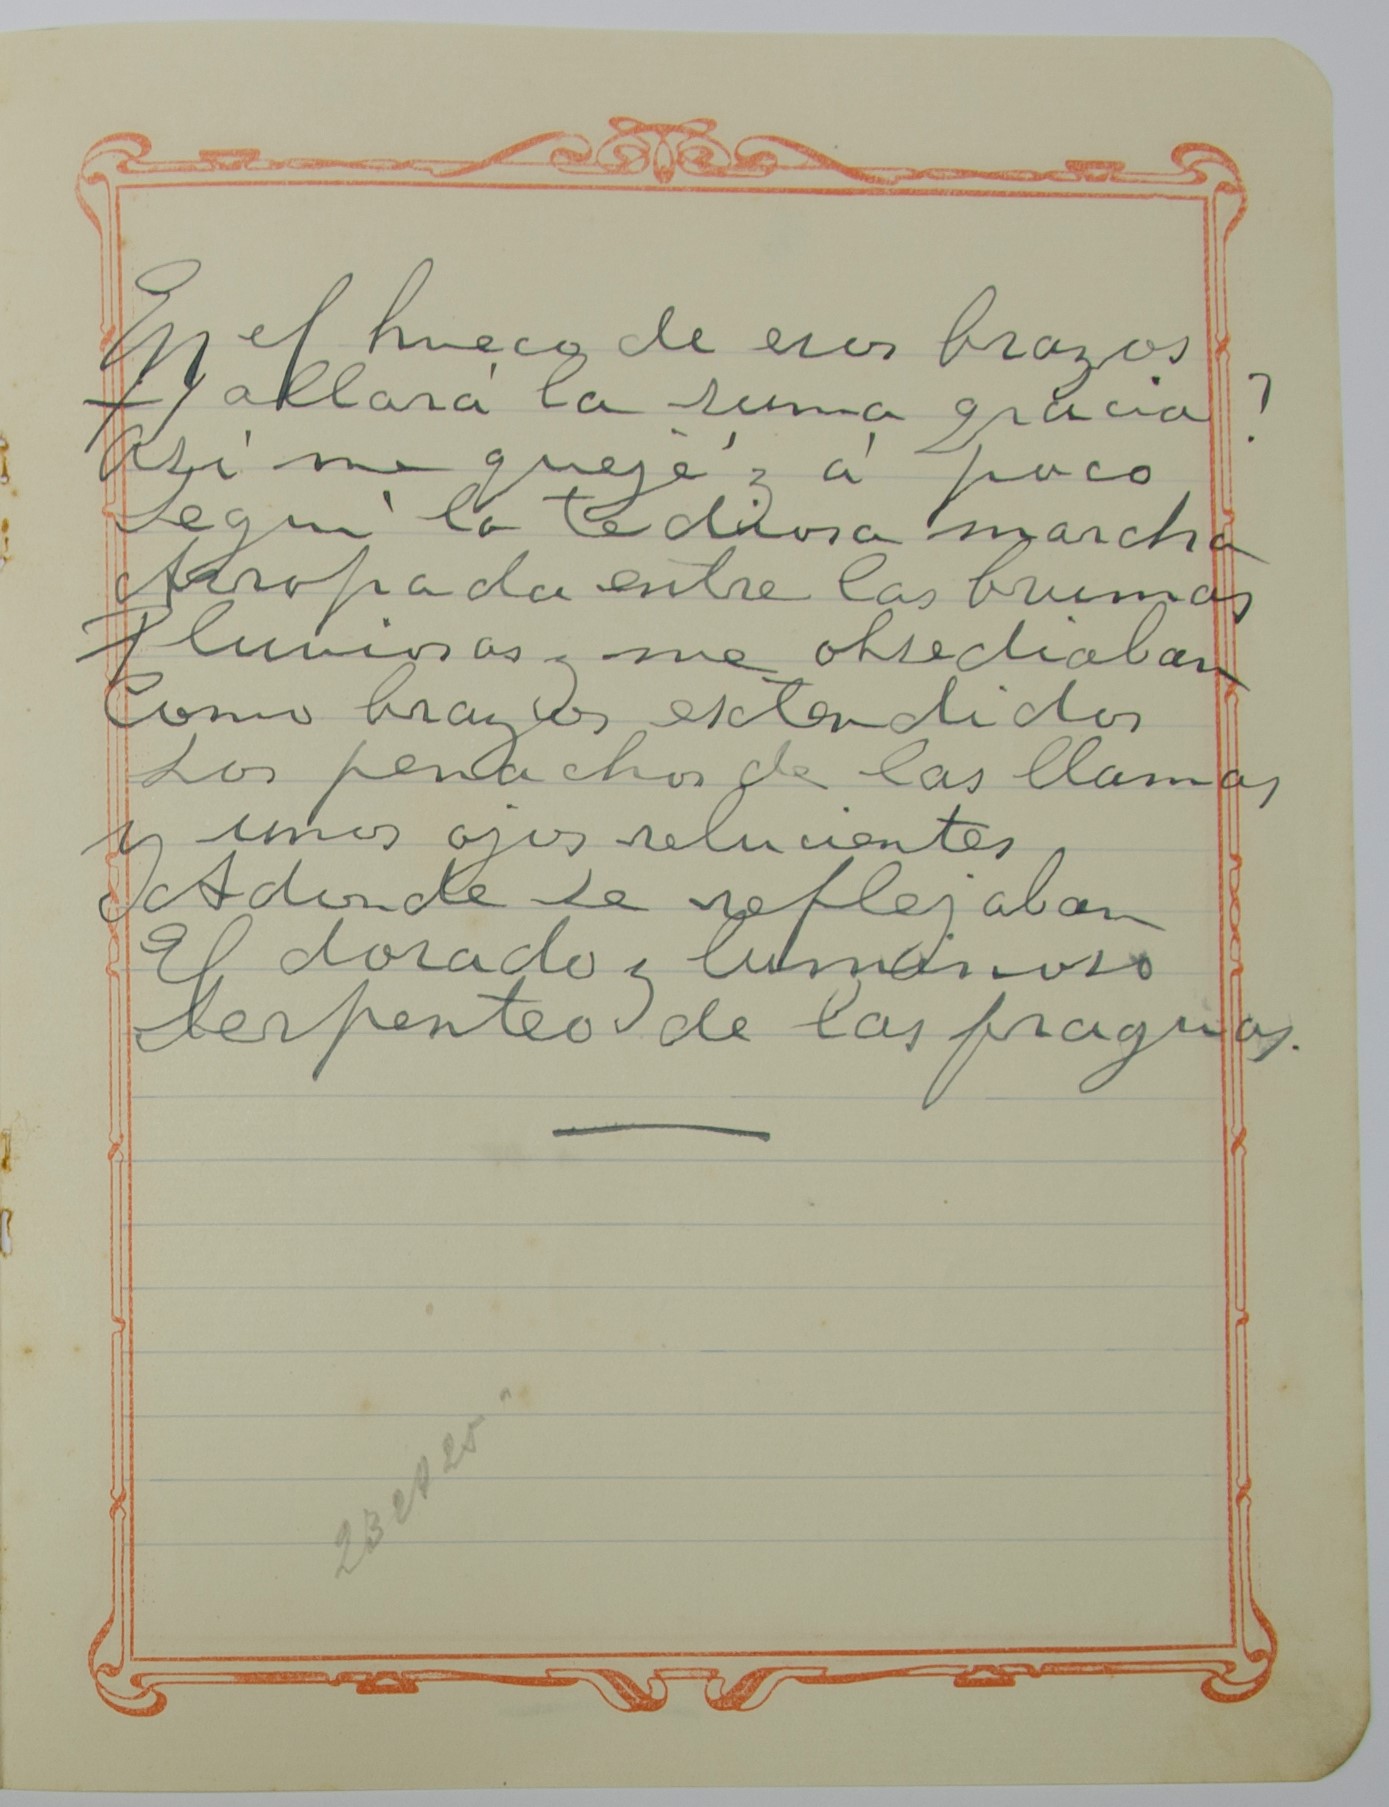 En el hueco de esos brazos
Hallará la suma gracia?
Así me quejé y á poco
Seguí la tediosa marcha
Arropada entre las brumas
Pluviosas y me obsediaban
Como brazos extendidos
Los penachos de las llamas
y unos ojos relucientes
Adonde se reflejaban
El dorado y luminoso
Serpenteo de las fraguas.